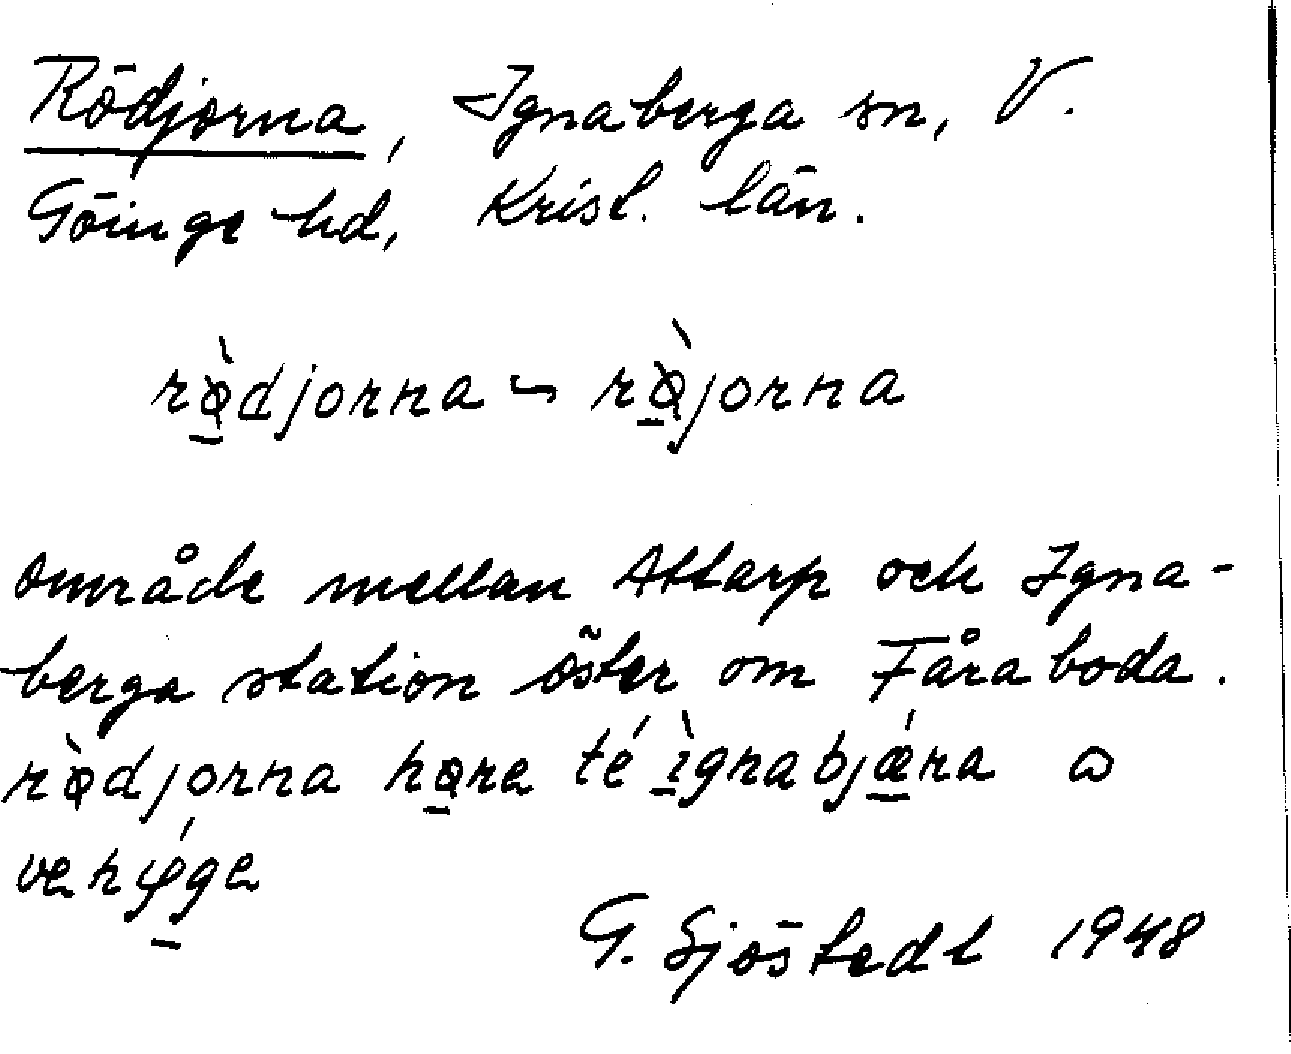 Rödjorna, Ignaberga sn, V.
Göinge hd, Krist. län.
rø̱̀djorna ~ rø̱̀jorna
område mellan Attarp och Igna-
berga station öster om Fåraboda.
rø̀djorna høre té ì̱gnabjǽ̱ra